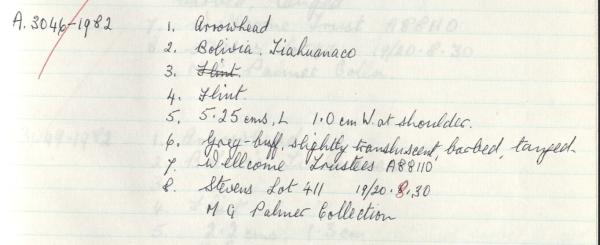 A.3046-1982 1. Arrowhead
2. Bolivia. Tiahuanaco
3. Flint.
4. Flint.
5. 5.25 cms, L 1.0 cm W. at shoulder.
6. Grey-buff, slightly transluscent, barbed, tanged.
7. Wellcome Trustees A88110
8. Stevens Lot 411 19/20.8.30
M G Palmer Collection